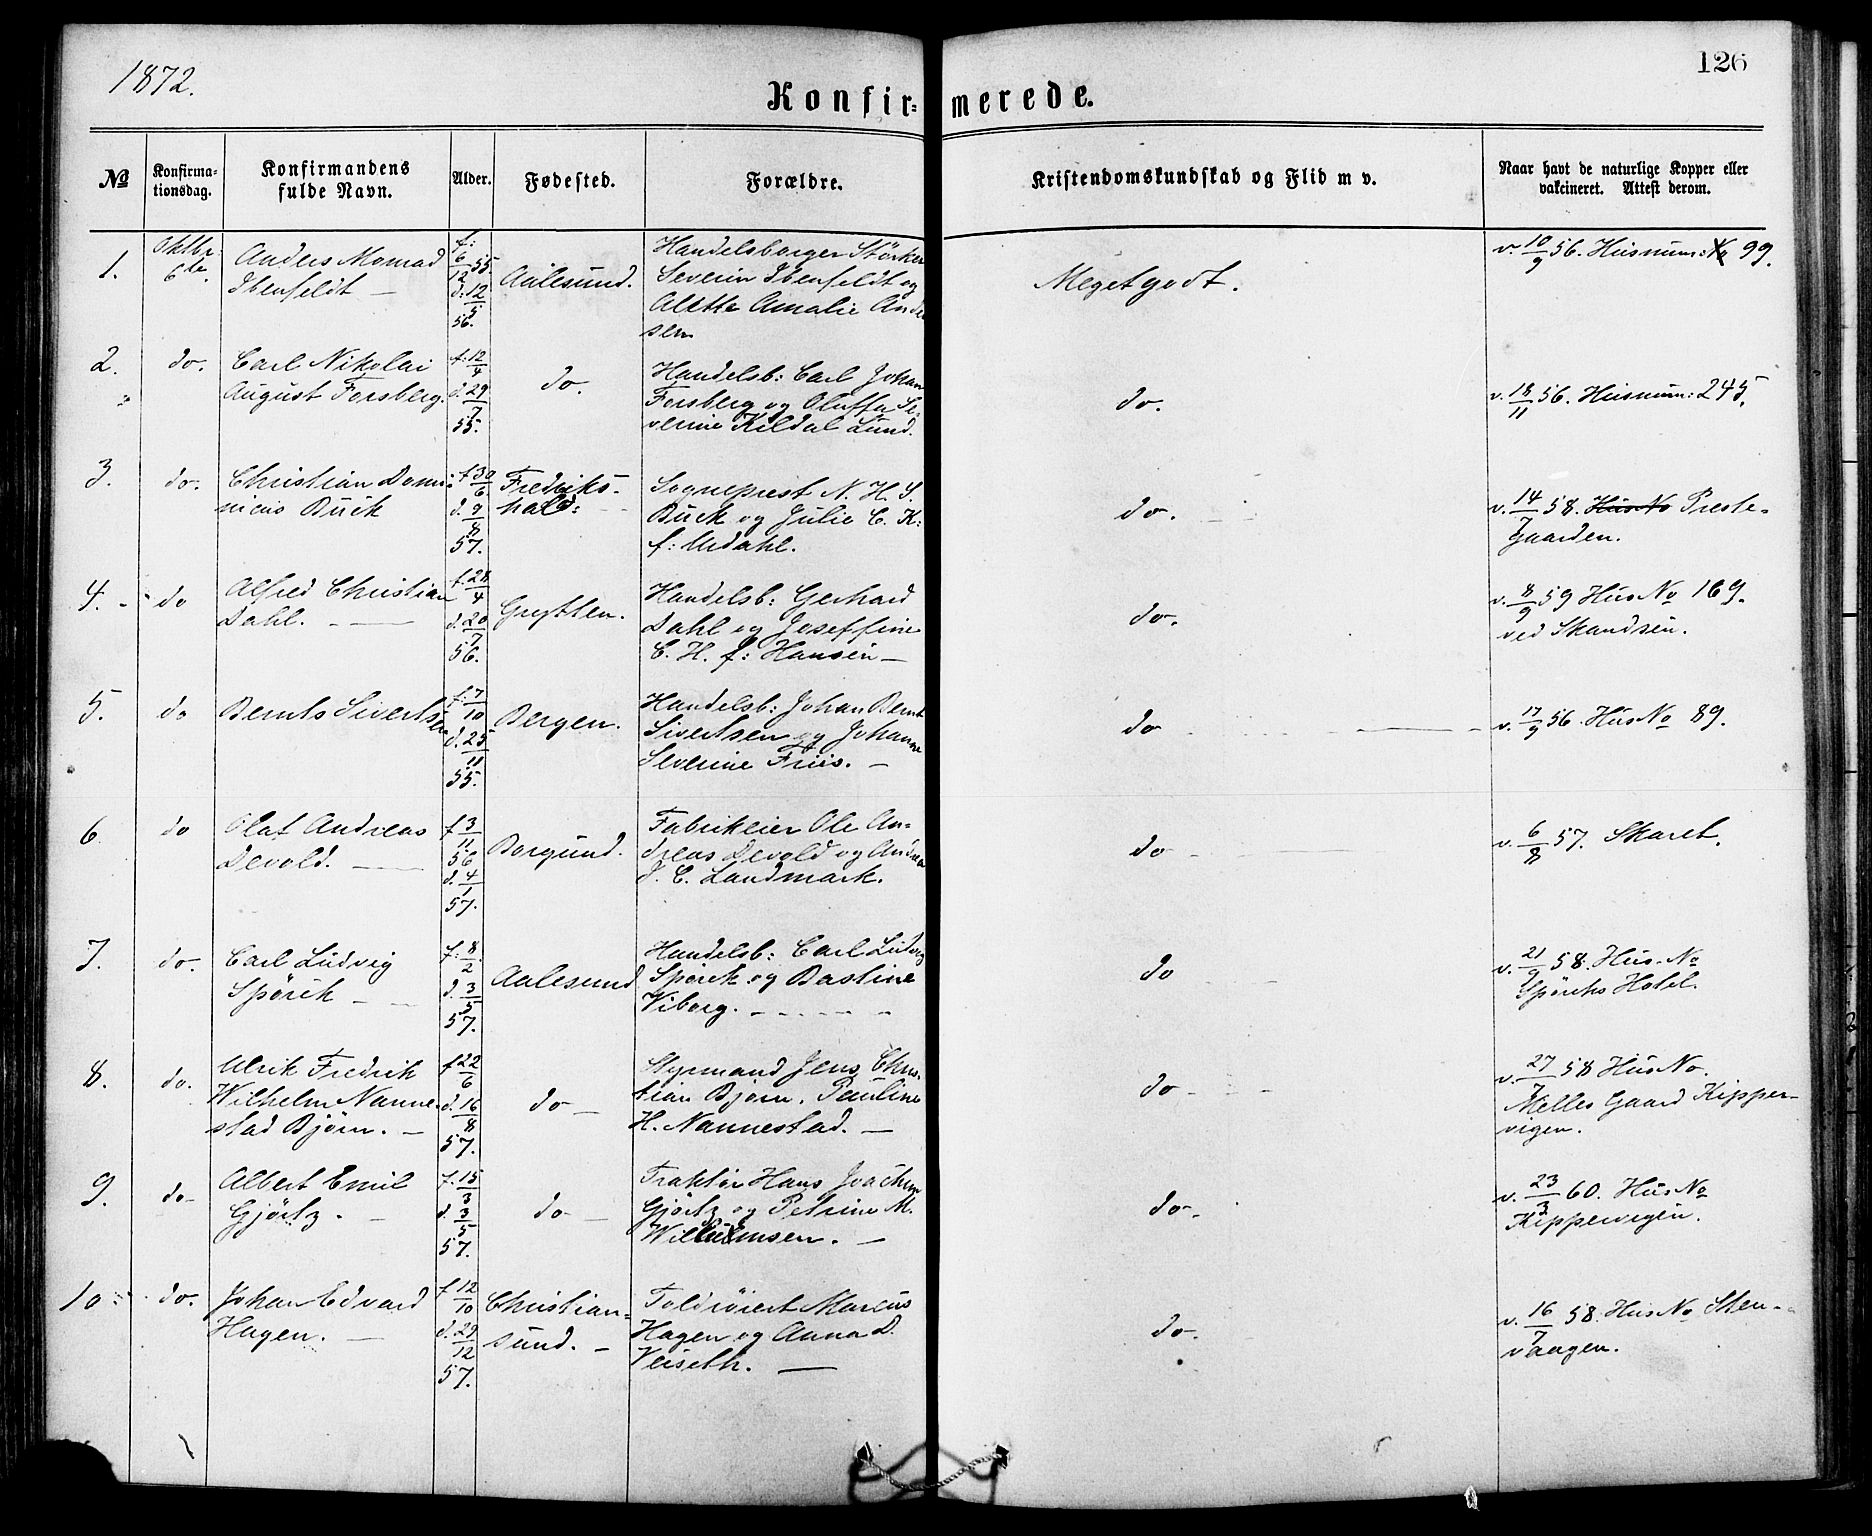 1872.
126
Konfir- merede.
No
Konfirma-
tionsdag.
Konfirmandens
fulde Navn.
Alder.
Fødested.
Forældre.
Kristendomskundskab og Flid m v.
Naar havt de naturlige Kopper eller
vakcineret. Attest derom.
1.
Oktbr
6te
Anders Monrad
Ibenfeldt —
f:
6/12 55.
d: 12/5
56.
Aalesund.
Handelsborger Störker
Severin Ibenfeldt og
Alette Amalie Ander
sen
Meget godt.
v. 10/9 56. Husnum: No 99.
2.
do.
Carl Nikolai
August Forsberg.
f: 12/4
d. 29/7
55.
do.
Handelsb: Carl Johan
Forsberg og Oluffa Se-
verine Kildal Lund.
do.
v. 18/11 56. Husnum: 245.
3.
do.
Christian Domi-
nicus Buck
f 30/6
d. 9/8
57.
Fredriks-
hald:
Sogneprest N. H. S.
Buck og Julie C. K:
f: Urdahl.
do.
v. 14/7 58. HusNo Preste-
gaarden.
4.
do
Alfred Christian
Dahl. —
f. 28/4
d. 20/7
56.
Grytten.
Handelsb: Gerhard
Dahl og Joseffine
C. H. f: Hansen —
do.
v. 8/9 59 Hus No 169.
ved Skandsen.
5.
do
Bernts Sivertsen
f: 7/10
d. 25/11
55.
Bergen.
Handelsb: Johan Bernt
Sivertsen og Johanne
Severine Friis. —
do
v. 17/9 56. Hus No 89.
6
do
Olaf Andreas
Devold. —
f 3/11
56
d. 4/1
57.
Borgund.
Fabrikeier Ole An-
dreas Devold og Andrea
J. C. Landmark.
do
v. 6/8 57. Skaret.
7.
do.
Carl Ludvig
Spörck —
f: 8/2
d. 3/5
57.
Aalesund
Handelsb: Carl Ludvig
Spörck og Bastine
Viborg.
do
v. 21/9 58. Hus. No
Spörcks Hotel.
8.
do.
Ulrik Fredrik
Wilhelm Nanne-
stad Bjørn. —
f 22/6
d. 16/8
57.
do —
Styrmand Jens Chris-
tian Bjørn. Pauline
H. Nannestad. —
do
v. 27/7 58 Hus No.
Melles Gaard Kipper-
vigen.
9.
do-
Albert Emil
Gjörtz. —
f. 15/3
d. 3/5
57.
do —
Traktör Hans Joachim
Gjörtz og Petrine M.
Wilhelmsen. —
do-
v. 23/3 60. Hus No
Kippervigen.
10.
do.
Johan Edvard
Hagen. —
f 12/10
d. 29/12
57.
Christian-
sund. —
Toldröiert Marcus
Hagen og Anna D.
Veiseth. —
do-
v. 16/7 58. Hus No Sten-
vaagen.